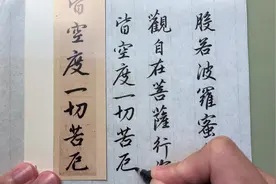 般若波羅蜜
觀自在菩薩行
皆空度一切苦厄
皆空度一切苦厄